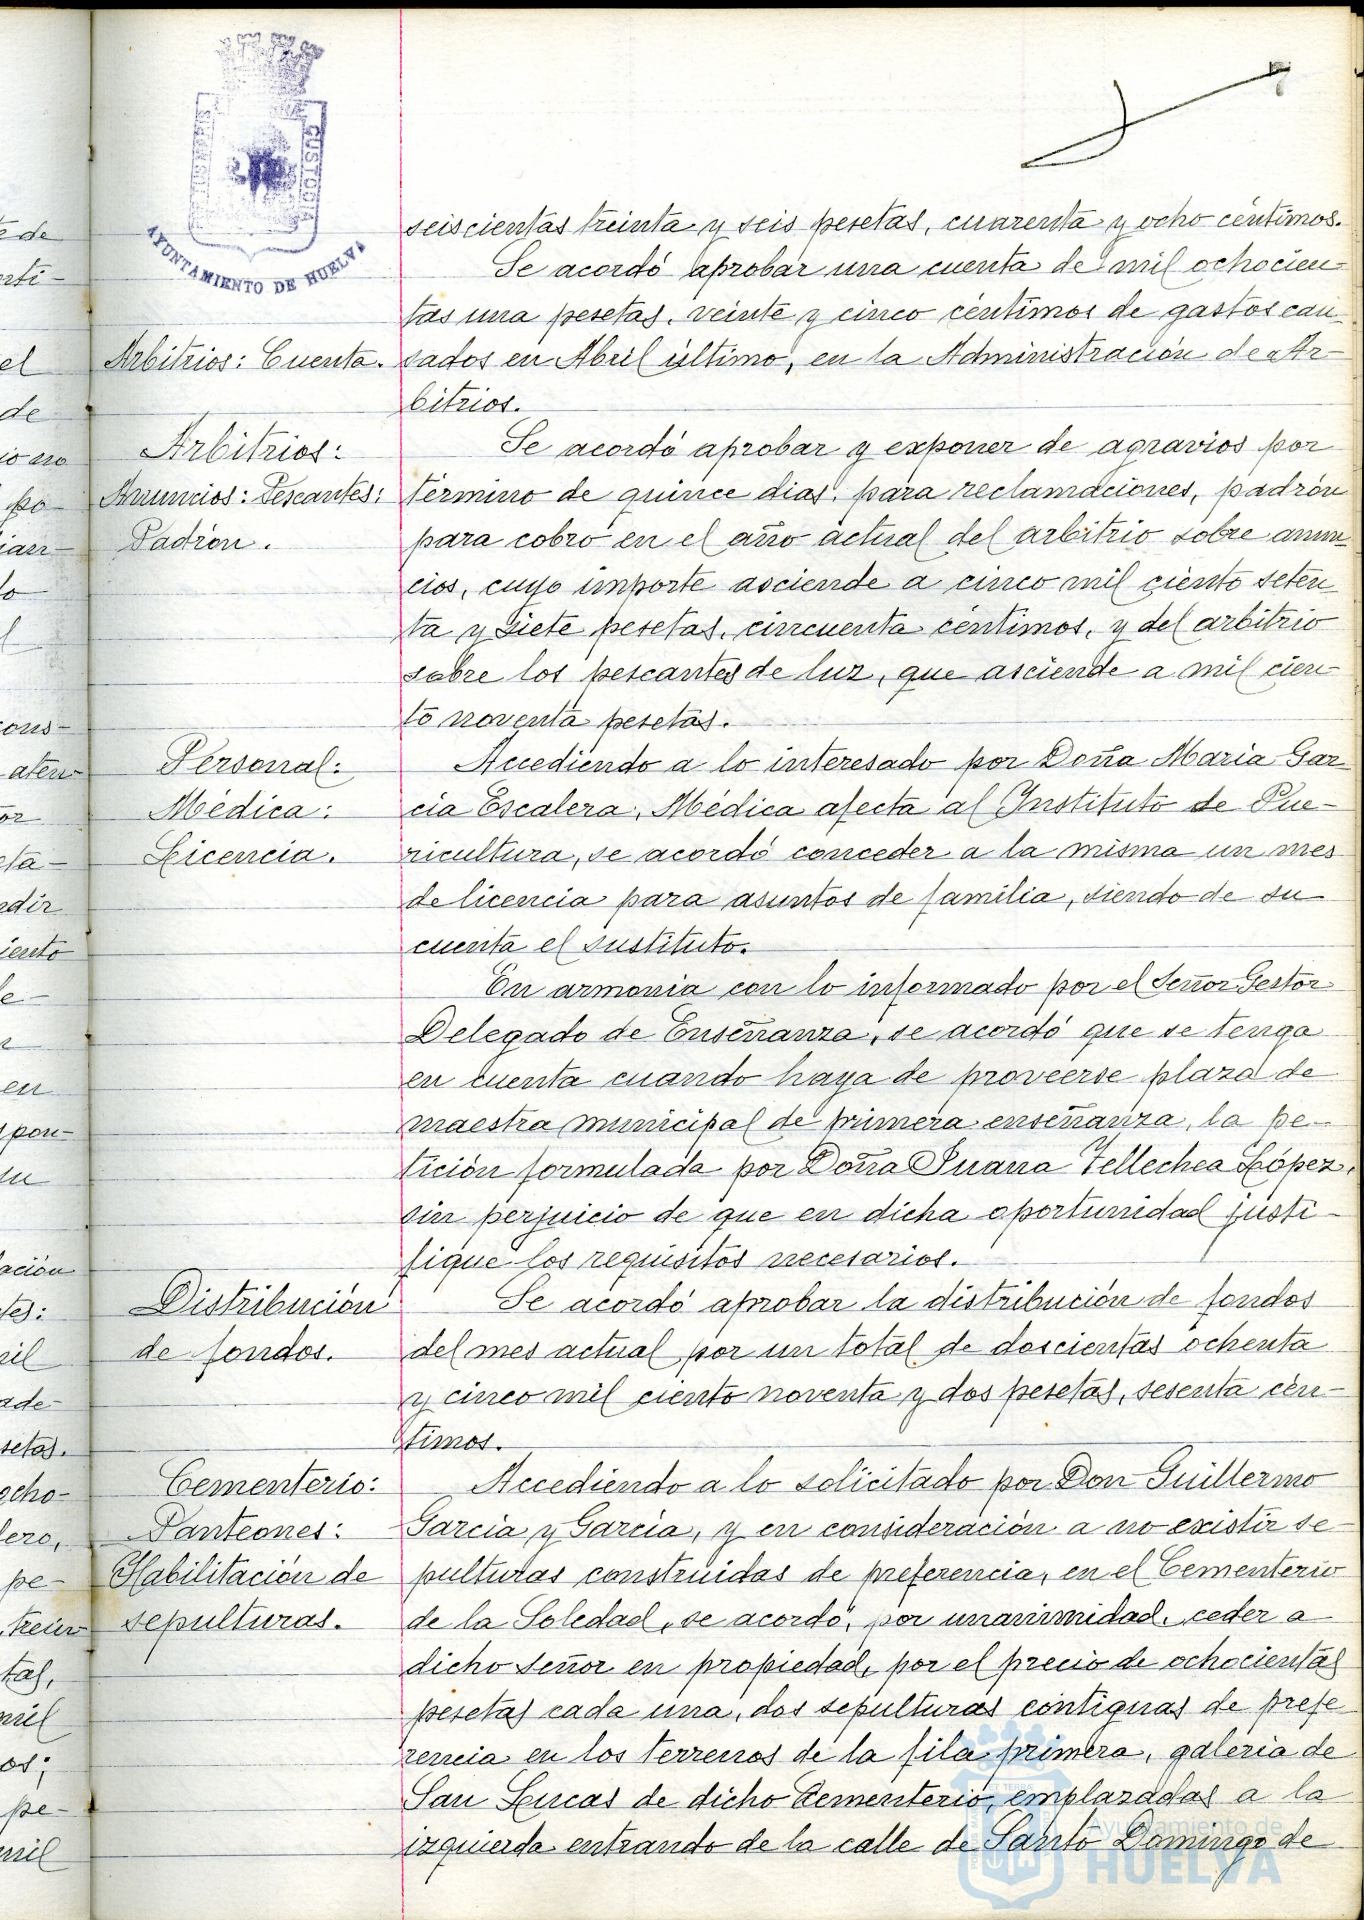 7
AYUNTAMIENTO DE HUELVA
CUSTODIA
seiscientas treinta y seis pesetas, cuarenta y ocho céntimos.
Se acordó aprobar una cuenta de mil ochocien-
tas una pesetas, veinte y cinco céntimos de gastos cau-
Arbitrios: Cuenta. sados en Abril último, en la Administración de Ar-
bitrios.
Arbitrios: Se acordó aprobar y exponer de agravios por
Anuncios: Pescantes: término de quince dias, para reclamaciones, padrón
Padrón. para cobro en el año actual del arbitrio sobre anun-
cios, cuyo importe asciende a cinco mil ciento seten-
ta y siete pesetas, cincuenta céntimos, y del arbitrio
sobre los pescantes de luz, que asciende a mil cien-
to noventa pesetas.
Personal: Accediendo a lo interesado por Doña Maria Gar-
Médica: cia Escalera, Médica afecta al Instituto de Pue-
Licencia. ricultura, se acordó conceder a la misma un mes
de licencia para asuntos de familia, siendo de su
cuenta el sustituto.
En armonia con lo informado por el Señor Gestor
Delegado de Enseñanza, se acordó que se tenga
en cuenta cuando haya de proveerse plaza de
maestra municipal de primera enseñanza, la pe-
tición formulada por Doña Juana Tellechea López,
sin perjuicio de que en dicha oportunidad justi-
fique los requisitos necesarios.
Distribución Se acordó aprobar la distribución de fondos
de fondos. del mes actual por un total de doscientas ochenta
y cinco mil ciento noventa y dos pesetas, sesenta cén-
timos.
Cementerio: Accediendo a lo solicitado por Don Guillermo
Panteones: Garcia y Garcia, y en consideración a no existir se-
Habilitación de pulturas construidas de preferencia, en el Cementerio
sepulturas. de la Soledad, se acordó, por unanimidad, ceder a
dicho señor en propiedad, por el precio de ochocientas
pesetas cada una, dos sepulturas contiguas de prefe
rencia en los terrenos de la fila primera, galeria de
San Lucas de dicho Cementerio, emplazadas a la
izquierda entrando de la calle de Santo Domingo de
Ayuntamiento de
HUELVA